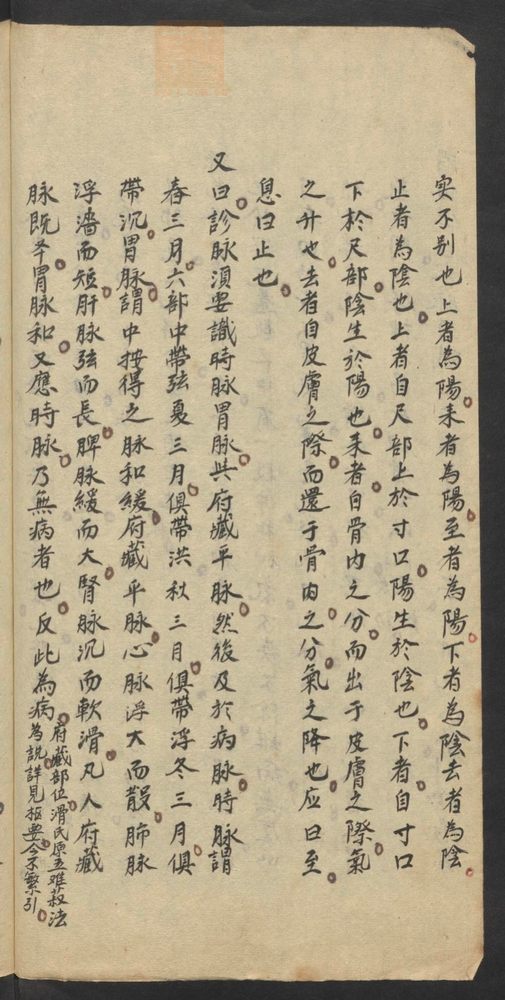 实不别也上者為陽来者為陽至者為陽下者為陰去者為陰
止者為陰也上者自尺部上於寸口陽生於陰也下者自寸口
下於尺部陰生於陽也来者自骨肉之分而出于皮膚之際氣
之升也去者自皮膚之際而還于骨肉之分氣之降也应曰至
息曰止也
又曰診脉須要識時脉胃脉與府藏平脉然後及於病脉時脉謂
春三月六部中帶弦夏三月俱帶洪秋三月俱帶浮冬三月俱
帶沉胃脉謂中按得之脉和緩府藏平脉心脉浮大而散肺脉
浮濇而短肝脉弦而長脾脉緩而大腎脉沉而軟滑凡人府藏
脉既平胃脉和又應時脉乃無病者也反此為病
府藏部位滑氏原五難菽法
為説詳見枢要今不繁引